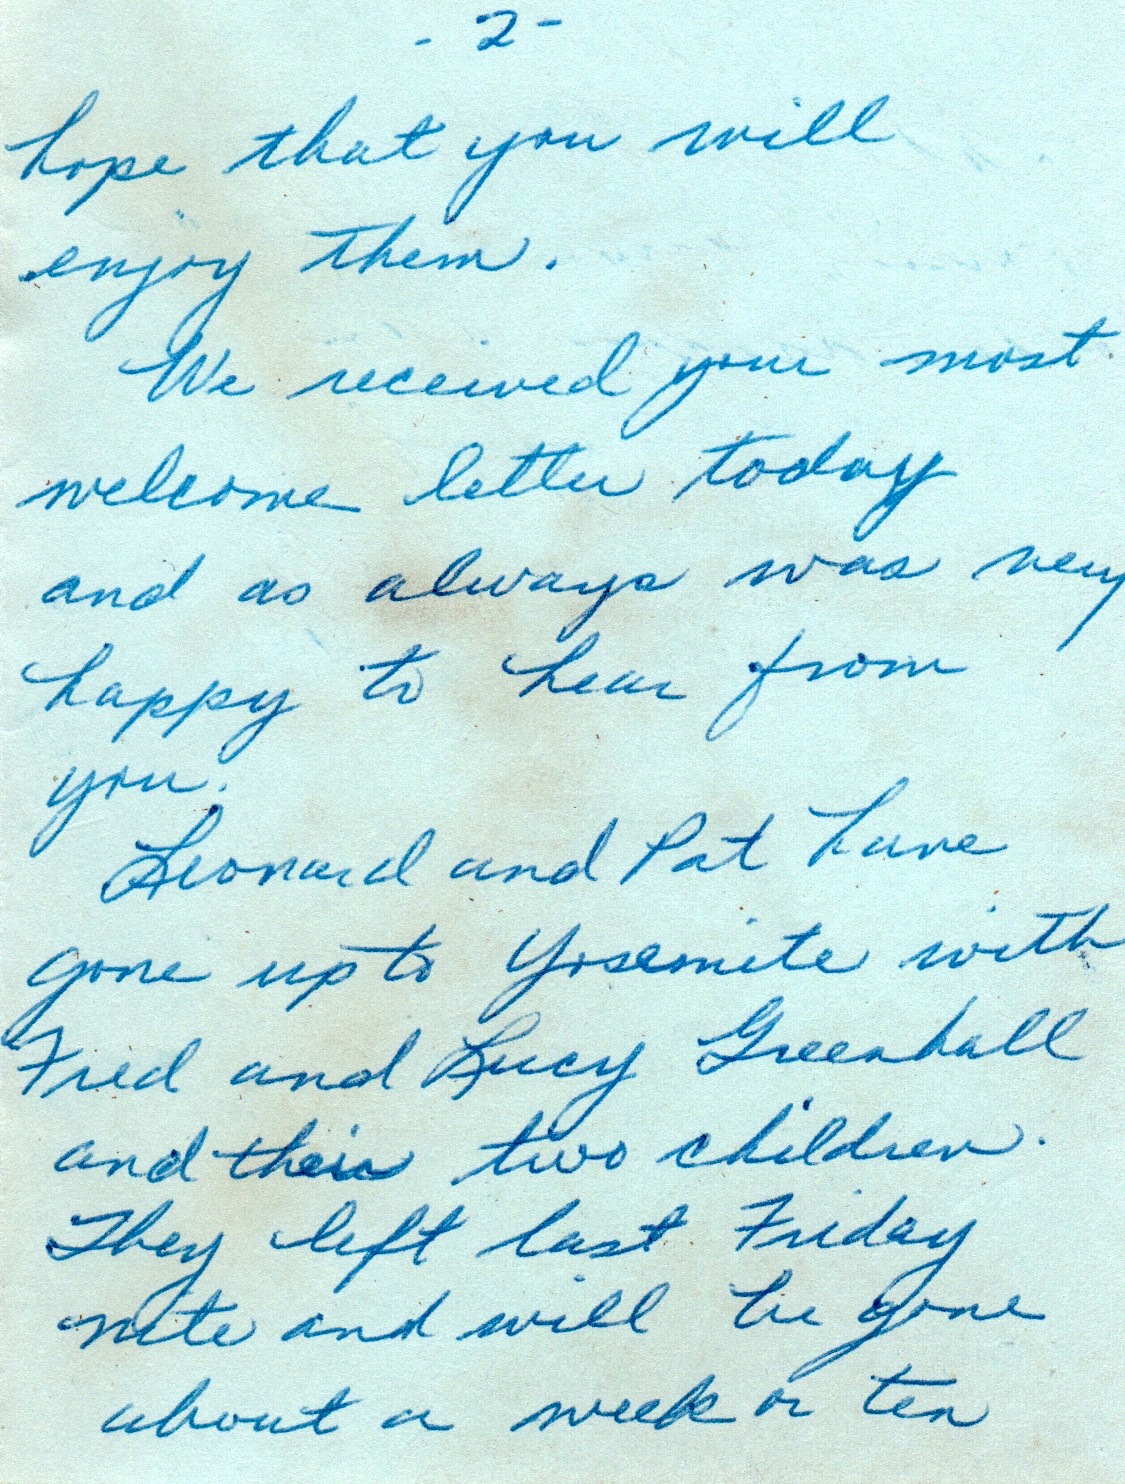 - 2 -
hope that you will
enjoy them.
We received your most
welcome letter today
and as always was very
happy to hear from
you.
Leonard and Pat have
gone up to Yosemite with
Fred and Lucy Greenhall
and their two children.
They left last Friday
nite and will be gone
about a week or ten